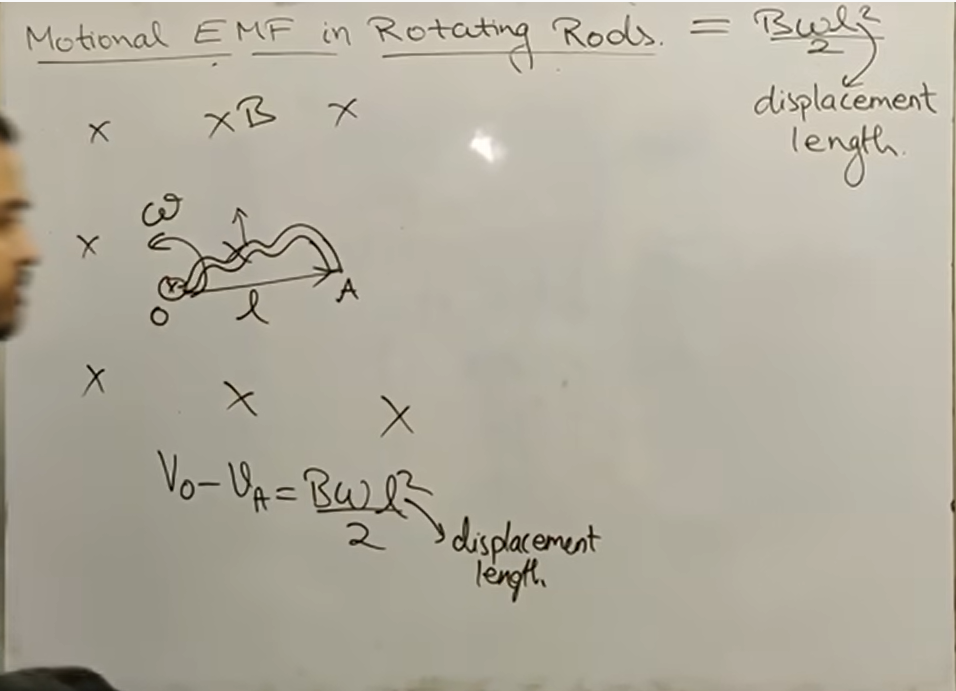 Motional EMF in Rotating Rods. = Bωl²/2
displacement
length.
× ×B ×
ω
×
O l A
× × ×
V₀-V_A = Bωl²/2
displacement
length.